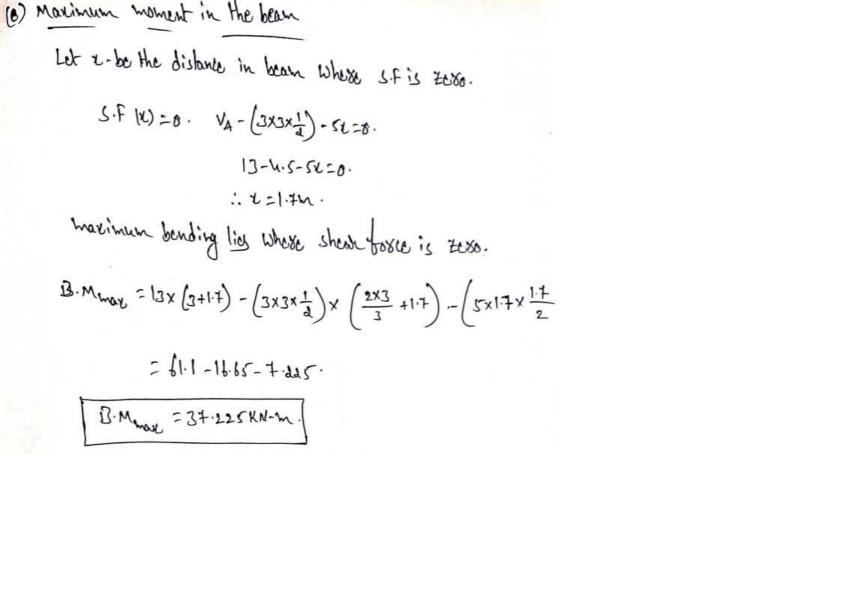 (e) Maximum moment in the beam
Let x-be the distance in beam where S.F is zero.
S.F (x)=0. VA-(3x3x1/2)-5x=0.
13-4.5-5x=0.
∴ x=1.7m.
maximum bending lies where shear force is zero.
B.Mmax = 13x(3+1.7) - (3x3x1/2)x(2x3/3 +1.7) - (5x1.7x 1.7/2
= 61.1-16.65-7.225.
B.Mmax = 37.225 KN-m.